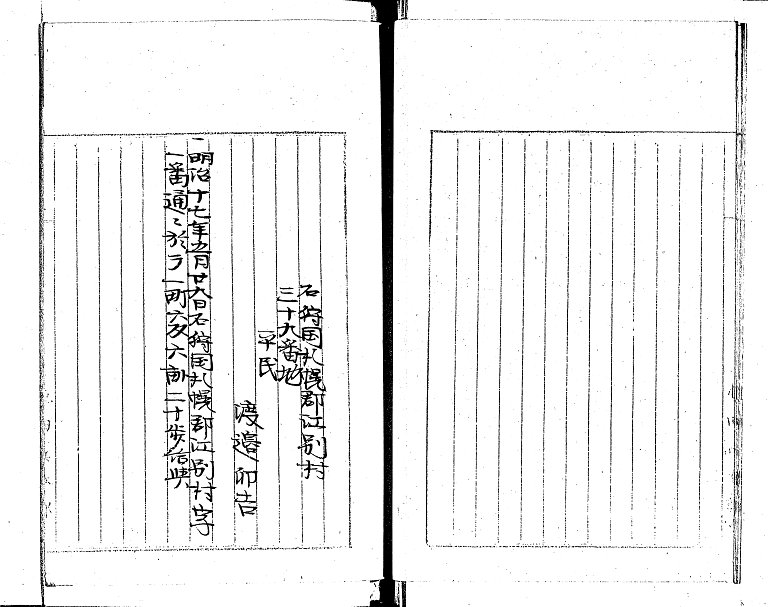 石狩国札幌郡江別村
三十九番地
平民
渡邉卯吉
一明治十七年五月廿八日石狩国札幌郡江別村字
一番通ニ於テ一町六反六畝二十歩給與